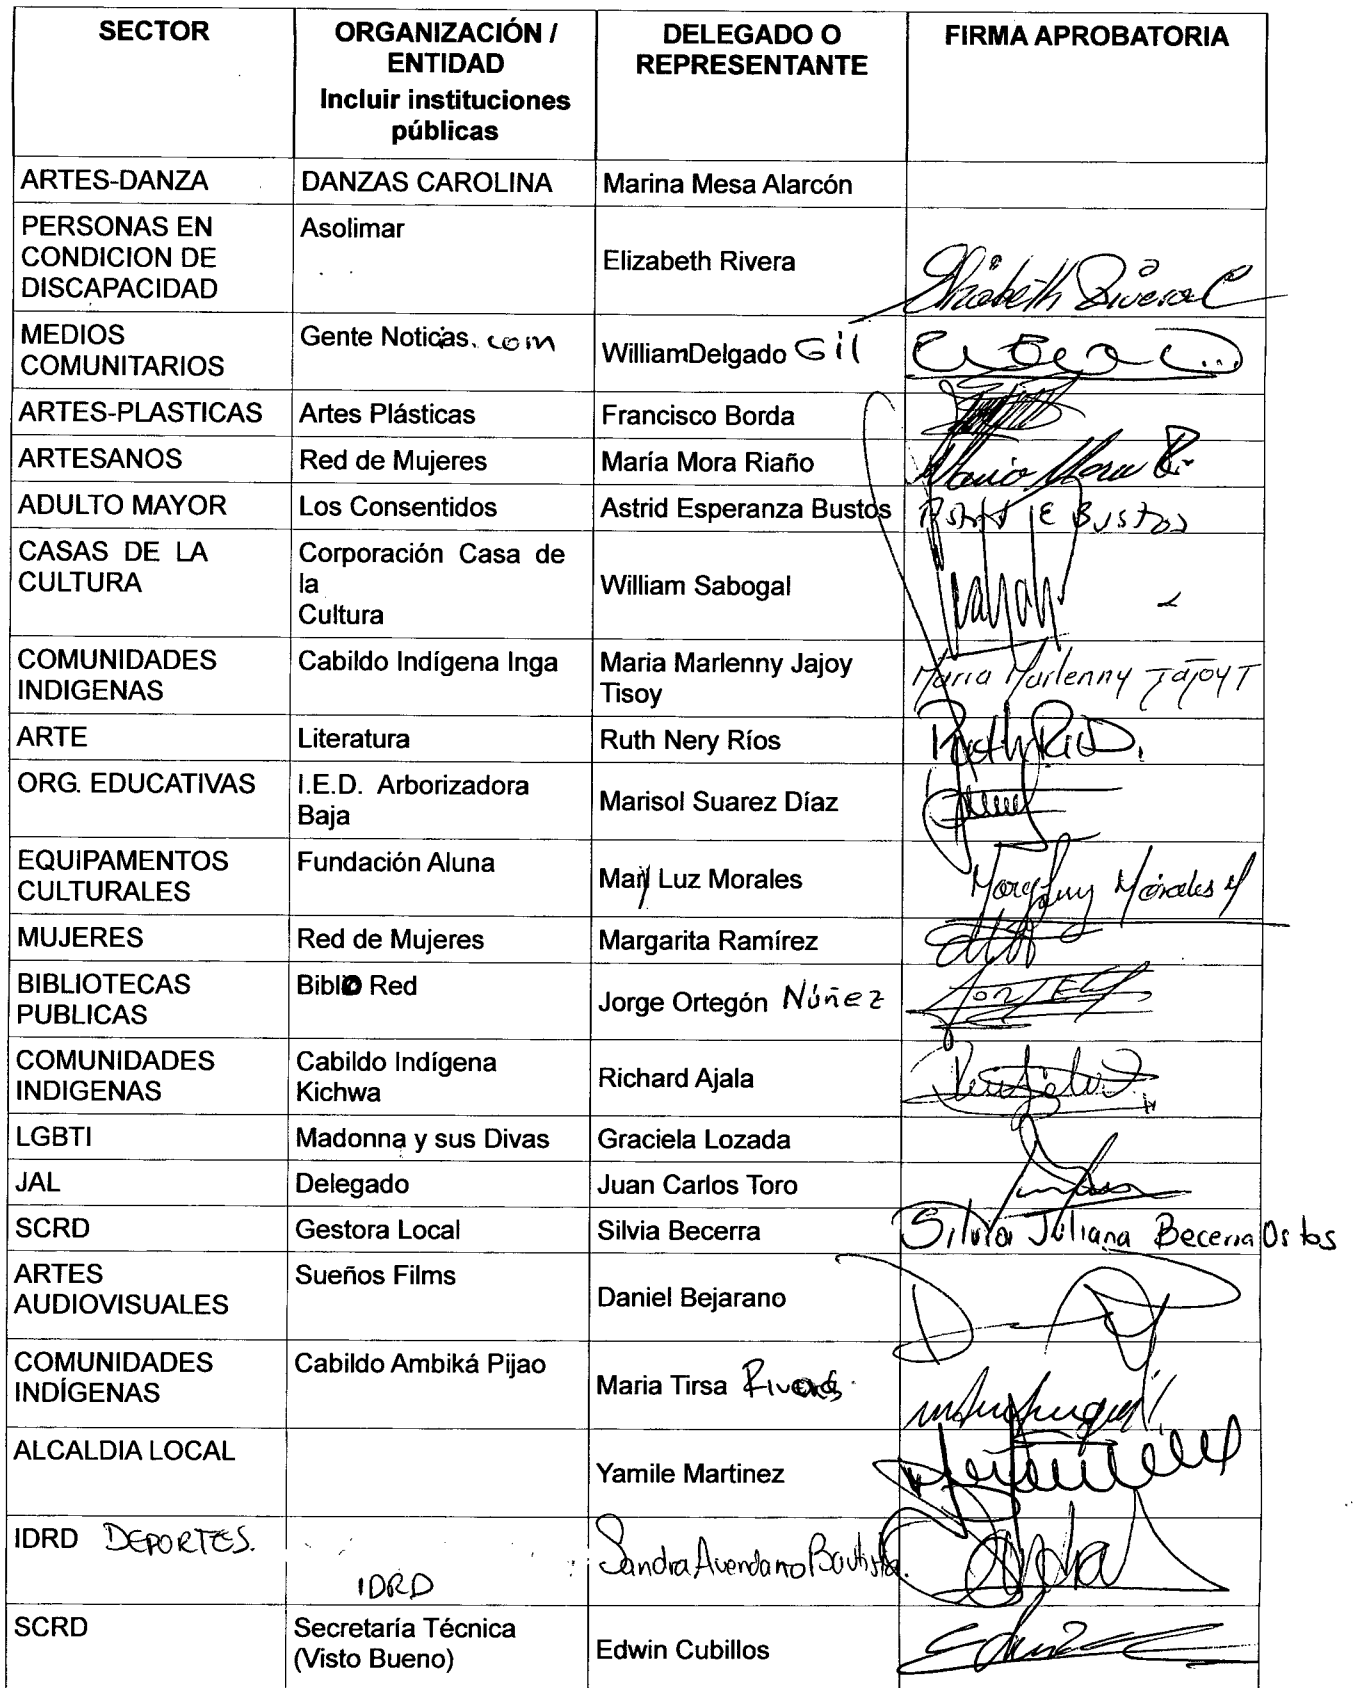 SECTOR
ORGANIZACIÓN /
ENTIDAD
Incluir instituciones
públicas
DELEGADO O
REPRESENTANTE
FIRMA APROBATORIA
ARTES-DANZA
DANZAS CAROLINA
Marina Mesa Alarcón
PERSONAS EN
CONDICION DE
DISCAPACIDAD
Asolimar
Elizabeth Rivera
Elizabeth Rivera C
MEDIOS
COMUNITARIOS
Gente Noticas.com
WilliamDelgado Gil
ARTES-PLASTICAS
Artes Plásticas
Francisco Borda
ARTESANOS
Red de Mujeres
María Mora Riaño
Maria Mora R
ADULTO MAYOR
Los Consentidos
Astrid Esperanza Bustos
Astrid E Bustos
CASAS DE LA
CULTURA
Corporación Casa de
la
Cultura
William Sabogal
COMUNIDADES
INDIGENAS
Cabildo Indígena Inga
Maria Marlenny Jajoy
Tisoy
Maria Marlenny Jajoy T
ARTE
Literatura
Ruth Nery Ríos
ORG. EDUCATIVAS
I.E.D. Arborizadora
Baja
Marisol Suarez Díaz
EQUIPAMENTOS
CULTURALES
Fundación Aluna
Mary Luz Morales
Mary Luz Morales M
MUJERES
Red de Mujeres
Margarita Ramírez
BIBLIOTECAS
PUBLICAS
Biblo Red
Jorge Ortegón Núñez
COMUNIDADES
INDIGENAS
Cabildo Indígena
Kichwa
Richard Ajala
LGBTI
Madonna y sus Divas
Graciela Lozada
JAL
Delegado
Juan Carlos Toro
SCRD
Gestora Local
Silvia Becerra
Silvia Juliana Becerra Ostos
ARTES
AUDIOVISUALES
Sueños Films
Daniel Bejarano
COMUNIDADES
INDÍGENAS
Cabildo Ambiká Pijao
Maria Tirsa
ALCALDIA LOCAL
Yamile Martinez
IDRD DEPORTES.
IDRD
Sandra Avendano Bautista.
SCRD
Secretaría Técnica
(Visto Bueno)
Edwin Cubillos